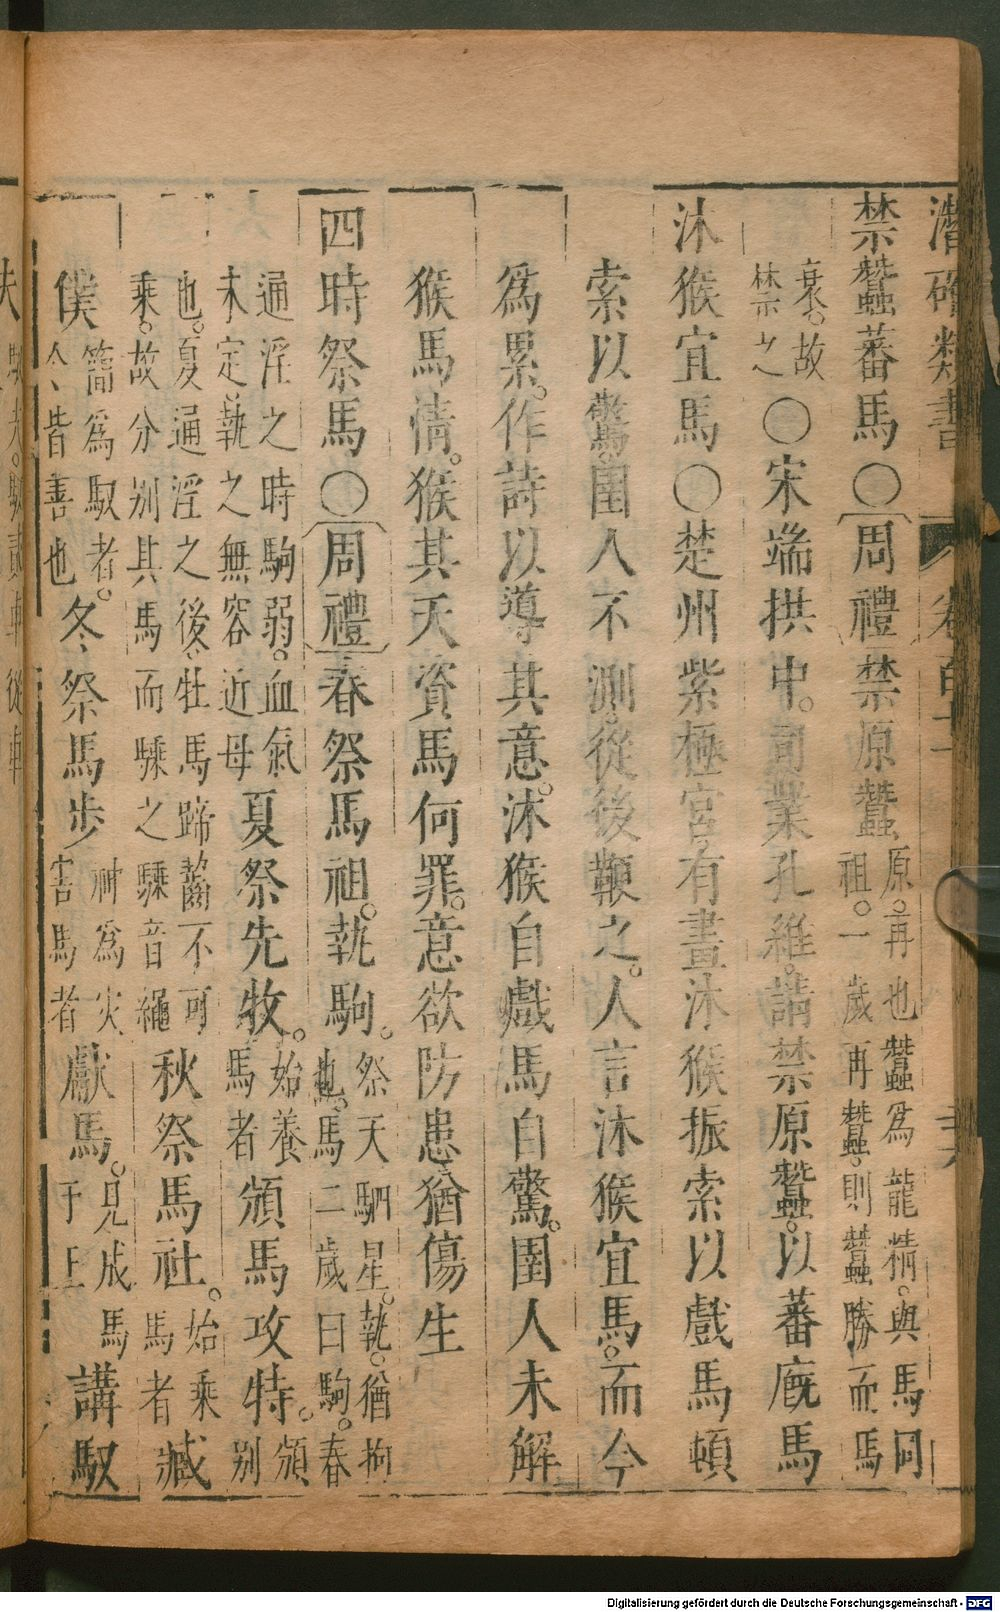 潛確類書 卷百十
禁蠶蕃馬〇周禮禁原蠶原。再也蠶爲龍精。與馬同祖。一歲再蠶。則蠶勝而馬
衰。故禁之〇宋端拱中。司業孔維。請禁原蠶。以蕃廐馬
沐猴宜馬〇楚州紫極宮。有畫沐猴振索以戲馬頓
索以驚。圉人不測。從後鞭之。人言沐猴宜馬。而今
爲累。作詩以導其意。沐猴自戲馬自驚。圉人未解
猴馬情。猴其天資馬何罪。意欲防患猶傷生
四時祭馬〇周禮春祭馬祖。執駒。祭天駟星。執。猶拘也。馬二歲曰駒。春
通淫之時駒弱。血氣未定。執之無容近母夏祭先牧。始養馬者頒馬攻特。頒别
也。夏通淫之後。牡馬蹄齧不可乘。故分别其馬而騬之騬音繩秋祭馬社。始乘馬者臧
僕簡爲馭者。令皆善也冬祭馬步神爲災害馬者獻馬。見成馬于王講馭
夫馭夫。馭貳車從車
Digitalisierung gefördert durch die Deutsche Forschungsgemeinschaft - DFG